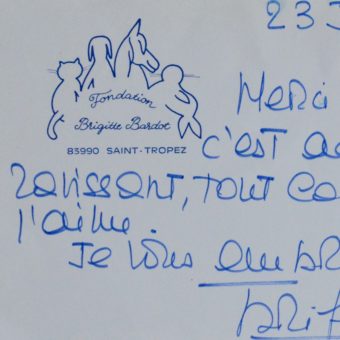 23 J
Fondation
Brigitte Bardot
83990 SAINT-TROPEZ
Merci
c'est
ravissant, tout co
j'aime.
Je vous embr